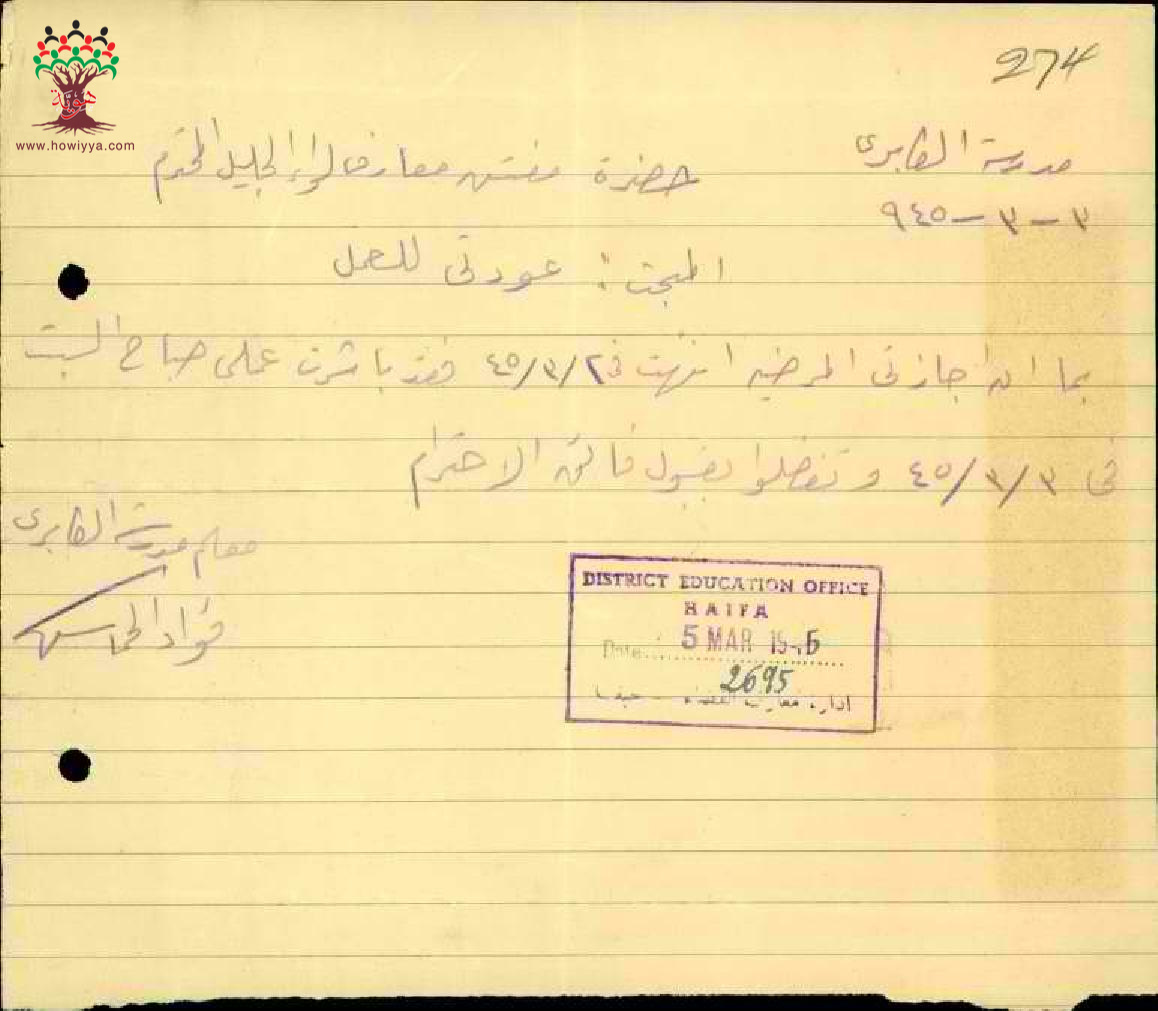 هوية
www.howiyya.com
274
مدرسة الكابري
٣ - ٣ - ٩٤٥
حضرة مفتش معارف لواء الجليل المحترم
المبحث : عودتي للعمل
بما ان اجازتي المرضيه انتهت في ٤٥/٣/٢ فقد باشرت عملي صباح السبت
في ٤٥/٣/٣ وتفضلوا بقبول فائق الاحترام
معلم مدرسة الكابري
فؤاد
DISTRICT EDUCATION OFFICE
HAIFA
Date 5 MAR
2695
ادارة معارف القضاء - حيفا